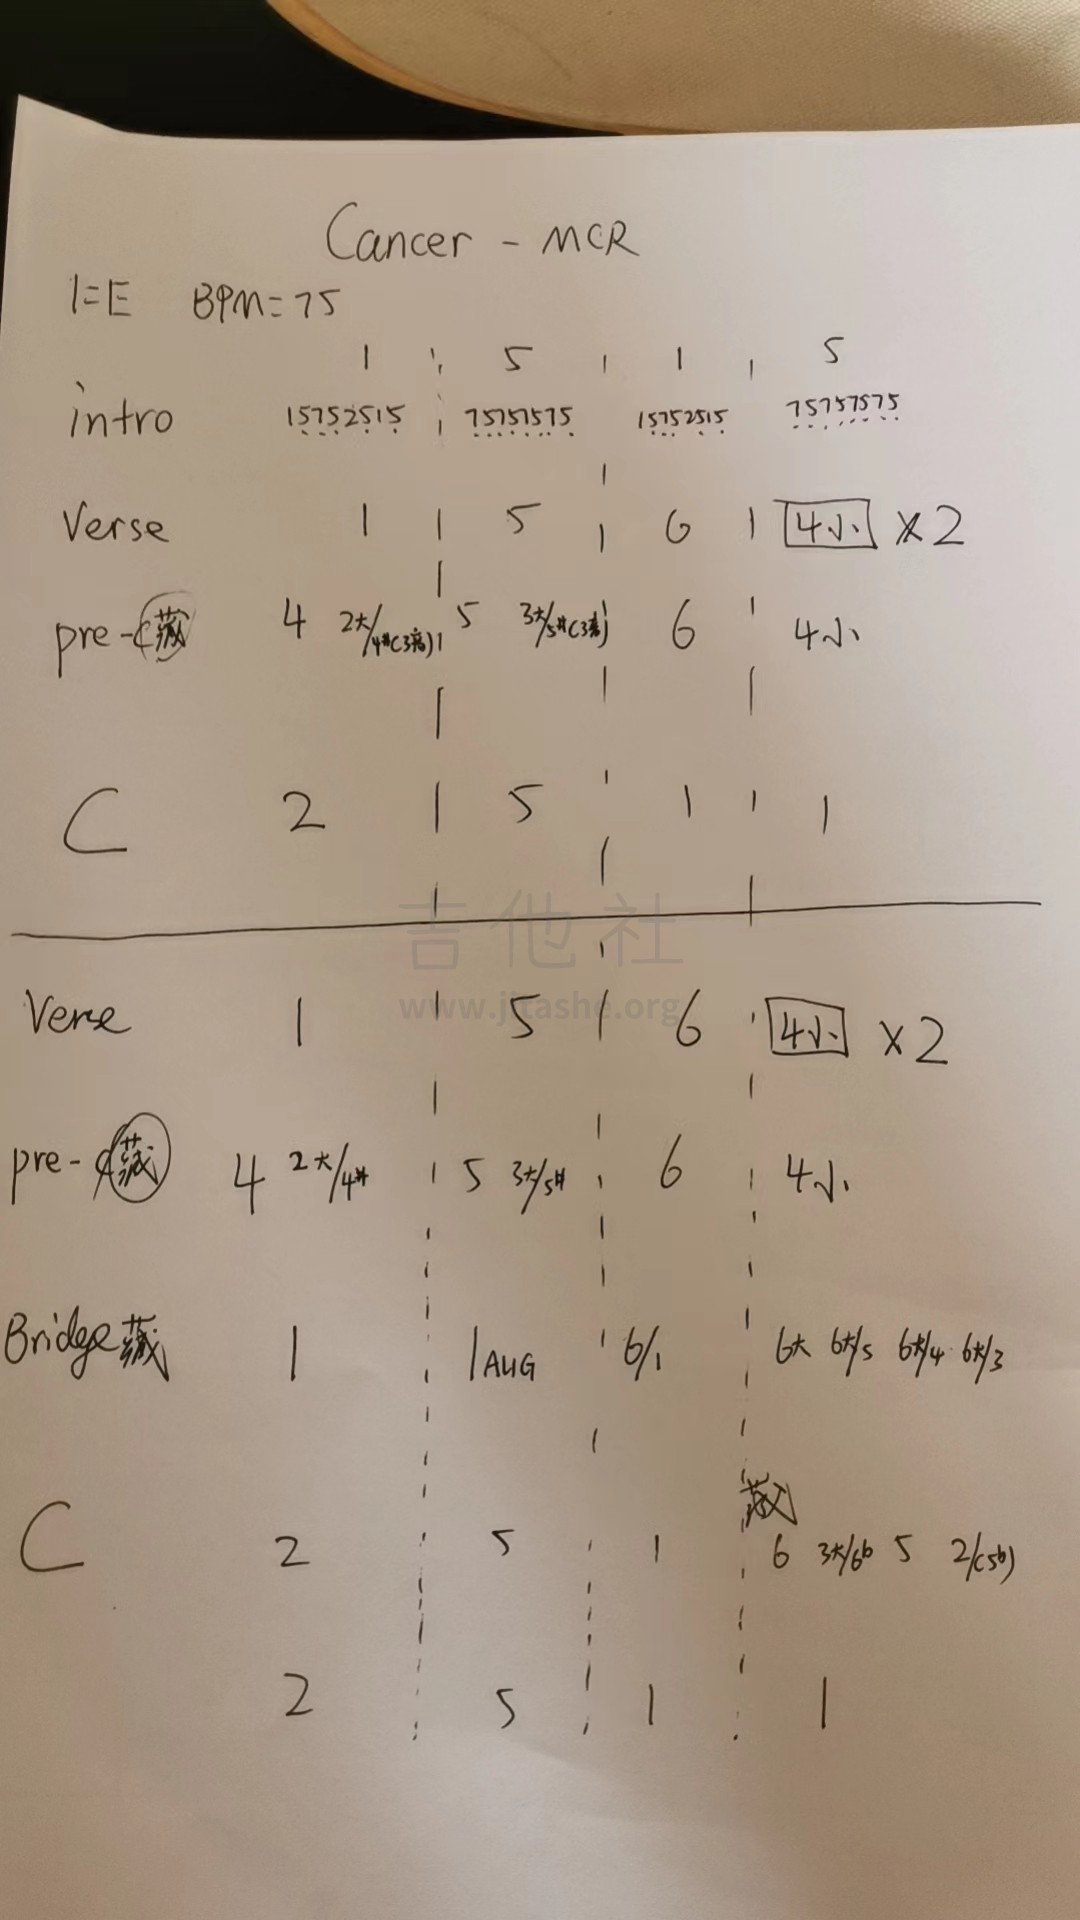 Cancer - MCR
1=E BPM=75
1 | 5 | 1 | 5
intro 15752515 | 75757575 | 15752515 | 75757575
Verse 1 | 5 | 6 | 4小 x2
pre-c藏 4 2大/4#(3音) | 5 3大/5#(3音) | 6 | 4小
C 2 | 5 | 1 | 1
吉他社
www.jitashe.org
Verse 1 | 5 | 6 | 4小 x2
pre-c藏 4 2大/4# | 5 3大/5# | 6 | 4小
Bridge藏 1 | 1AUG | 6/1 | 6大 6大/5 6大/4 6大/3
藏
C 2 | 5 | 1 | 6 3大/6b 5 2/(5b)
2 | 5 | 1 | 1